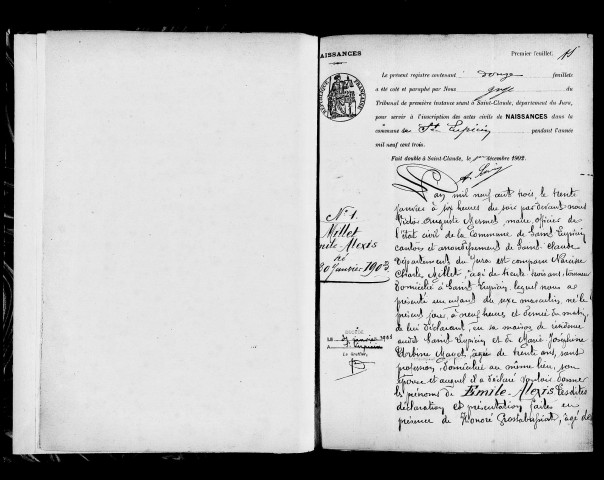 NAISSANCES
Premier feuillet.
Le présent registre contenant douze feuillets
a été coté et paraphé par Nous du
Tribunal de première instance séant à Saint-Claude, département du Jura,
pour servir à l'inscription des actes civils de NAISSANCES dans la
commune de St Lupicin pendant l'année
mil neuf cent trois.
Fait double à Saint-Claude, le décembre 1902.
N° 1.
Millet
Emile Alexis
né
30 Janvier 1903
DÉCÉDÉ
Le 31 janvier 1981
A St Lupicin
Le Greffier,
L'an mil neuf cent trois, le trente
janvier à six heures du soir par devant nous
Victor Auguste Mermet, maire, officier de
l'état civil de la Commune de Saint Lupicin,
canton et arrondissement de Saint-Claude
Département du Jura est comparu Narcisse
Charles Millet, âgé de trente trois ans, tourneur
domicilié à Saint Lupicin, lequel nous a
présenté un enfant du sexe masculin, né le
présent jour, à neuf heures et demie du matin,
de lui déclarant, en sa maison de résidence
audit Saint Lupicin et de Marie Joséphine
âgée de trente ans, sans
profession, domiciliée au même lieu, son
épouse et auquel il a déclaré vouloir donner
les prénoms de Emile-Alexis Lesdites
déclaration et présentation faites en
présence de Honoré âgé de